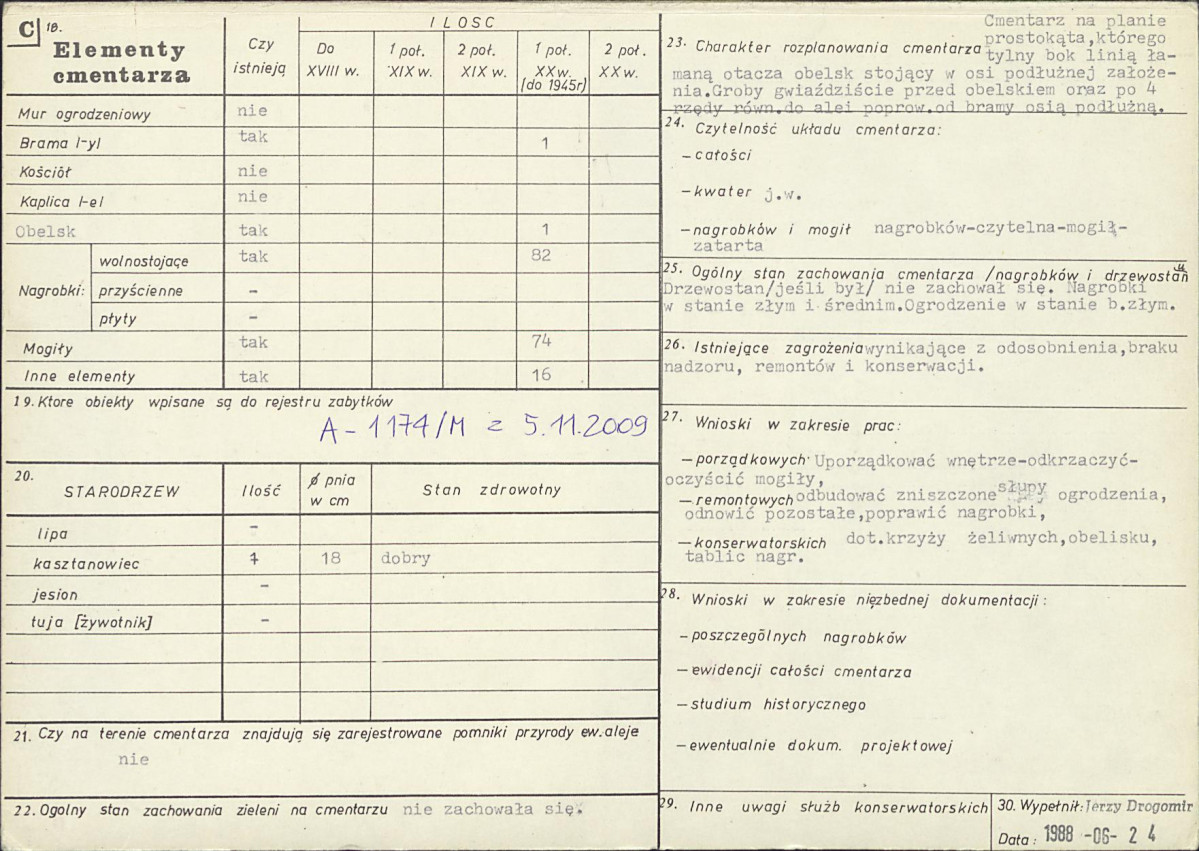 C 18.
Elementy
cmentarza
Czy
istnieją
ILOSC
Do
XVIII w.
1 poł.
XIX w.
2 poł.
XIX w.
1 poł.
XX w.
(do 1945r)
2 poł.
XX w.
Mur ogrodzeniowy nie
Brama /-y/ tak 1
Kościół nie
Kaplica /-e/ nie
Obelsk tak 1
Nagrobki:
wolnostojące tak 82
przyścienne –
płyty –
Mogiły tak 74
Inne elementy tak 16
19. Ktore obiekty wpisane są do rejestru zabytków
A-1174/M z 5.11.2009
20.
STARODRZEW
Ilość
ø pnia
w cm
Stan zdrowotny
lipa –
kasztanowiec 1 18 dobry
jesion –
tuja [żywotnik] –
21. Czy na terenie cmentarza znajdują się zarejestrowane pomniki przyrody ew. aleje
nie
22. Ogolny stan zachowania zieleni na cmentarzu nie zachowała się.
23. Charakter rozplanowania cmentarza Cmentarz na planie
prostokąta,którego
tylny bok linią ła-
maną otacza obelsk stojący w osi podłużnej założe-
nia.Groby gwiaździście przed obelskiem oraz po 4
rzędy równ.do alei poprow.od bramy osią podłużną.
24. Czytelność układu cmentarza:
– całości
– kwater j.w.
– nagrobków i mogił nagrobków-czytelna-mogił-
zatarta
25. Ogólny stan zachowania cmentarza /nagrobków i drzewostanu
Drzewostan/jeśli był/ nie zachował się. Nagrobki
w stanie złym i średnim.Ogrodzenie w stanie b.złym.
26. Istniejące zagrożenia wynikające z odosobnienia,braku
nadzoru, remontów i konserwacji.
27. Wnioski w zakresie prac:
– porządkowych Uporządkować wnętrze-odkrzaczyć-
oczyścić mogiły,
– remontowych odbudować zniszczone słupy ogrodzenia,
odnowić pozostałe,poprawić nagrobki,
– konserwatorskich dot.krzyży żeliwnych,obelisku,
tablic nagr.
28. Wnioski w zakresie niezbednej dokumentacji:
– poszczególnych nagrobków
– ewidencji całości cmentarza
– studium historycznego
– ewentualnie dokum. projektowej
29. Inne uwagi służb konserwatorskich
30. Wypełnił: Jerzy Drogomir
Data: 1988 -06- 2 4